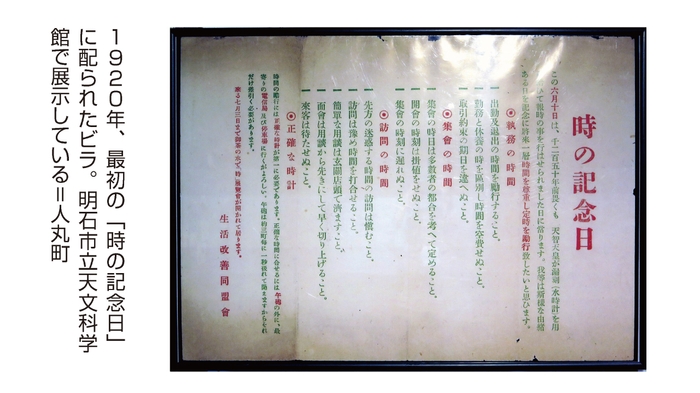 1920年、最初の「時の記念日」
に配られたビラ。明石市立天文科学
館で展示している＝人丸町
時の記念日
この六月十日は、千二百五十年前畏くも 天智天皇が漏刻(水時計)を用
ゐて報時の事を行はせられました日に當ります。我等は斯樣な由緒
ある日を記念に將來一層時間を尊重し定時を勵行致したいと思ひます。
◉執務の時間
一 出勤及退出の時間を勵行すること。
一 勤務と休養の時を區別し時間を空費せぬこと。
一 取引約束の期日を違へぬこと。
◉集會の時間
一 集會の時日は多數者の都合を考へて定めること。
一 開會の時刻は掛値をせぬこと。
一 集會の時刻に遲れぬこと。
◉訪問の時間
一 先方の迷惑する時間の訪問は愼むこと。
一 訪問は豫め時間を打合せること。
一 簡單な用談は玄關店頭で濟ますこと。
一 面會は用談から先きにして早く切り上げること。
一 來客は待たせぬこと。
◉正確な時計
時間の勵行には正確な時計が第一に必要であります。正確な時間に合せるには午砲の外に、最
寄りの電信局及び停車場に行くがよろしい。
だけ差引く必要があります。
生活改善同盟會